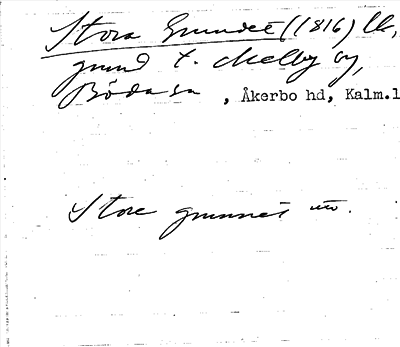 Stora Grundet (1816) Uk,
grund t. Mellby by,
Böda sn, Åkerbo hd, Kalm.l
Store grunnet